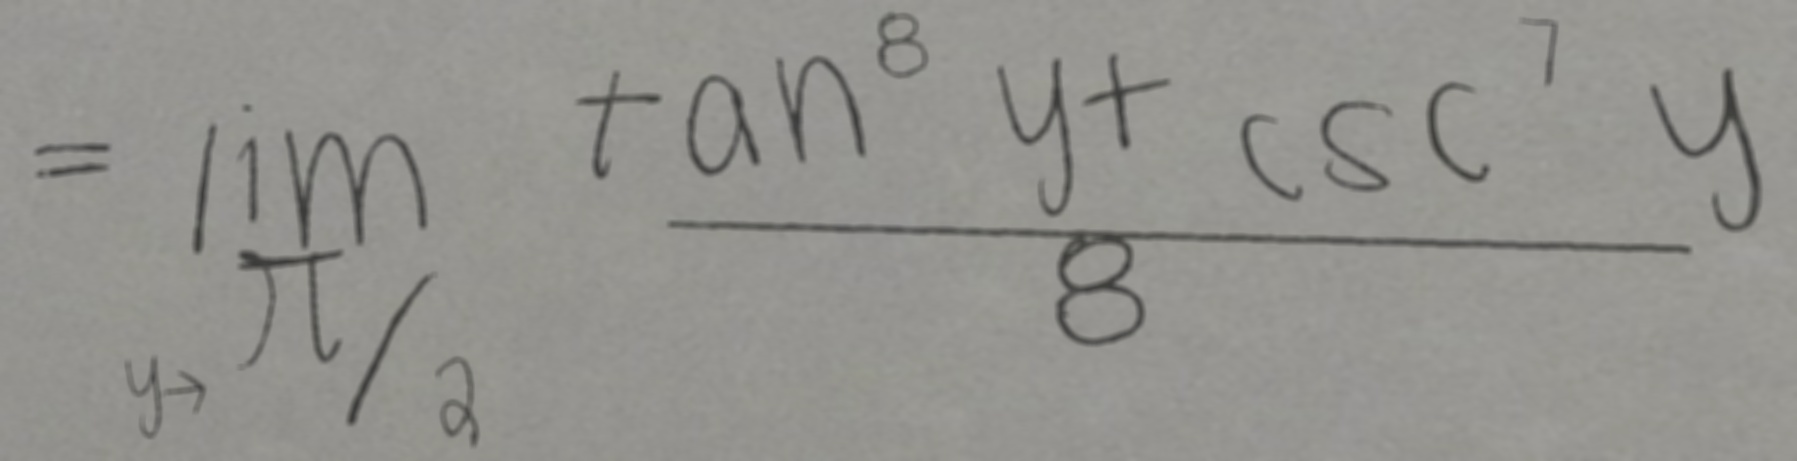 = lim_{y→π/2} \frac{tan^8 y + csc^7 y}{8}